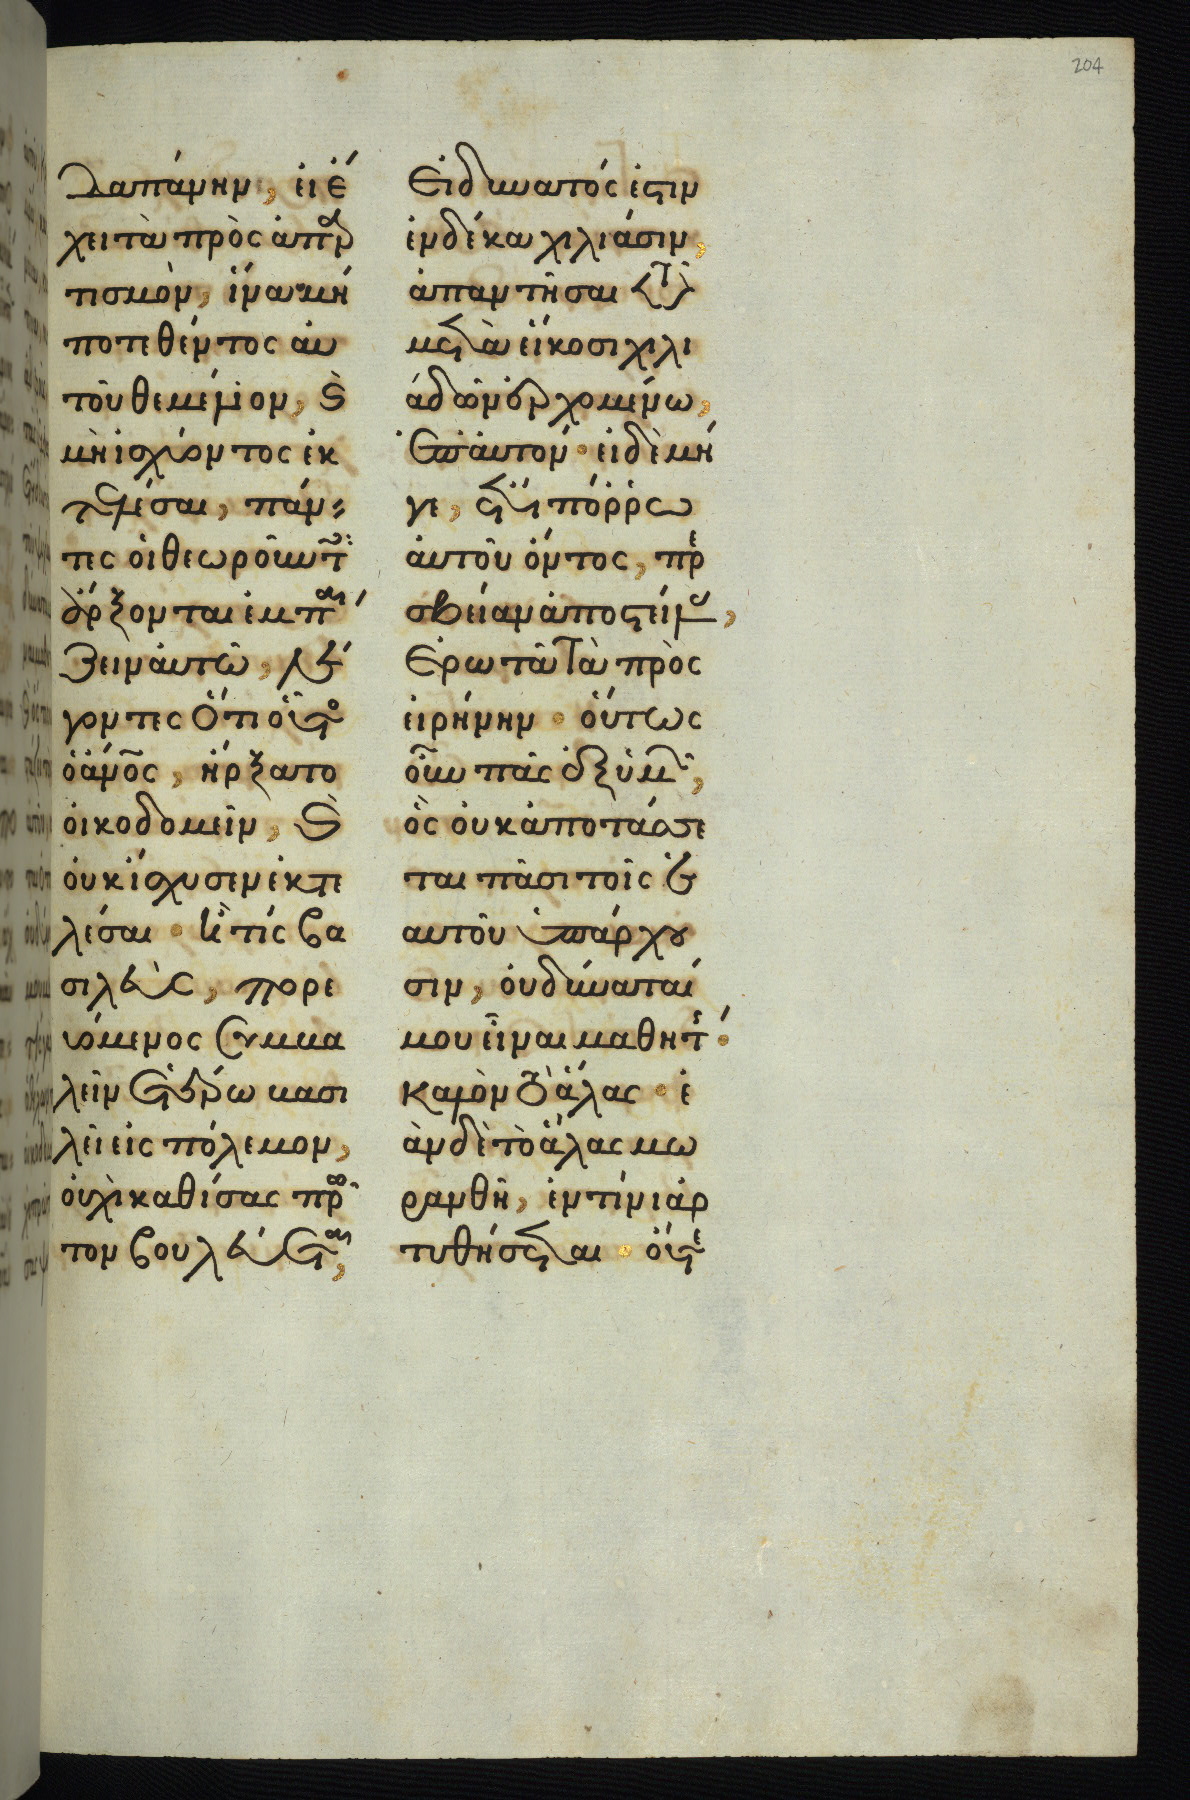 204
δαπάνην, εἰ ἔ
χει τὰ πρὸς ἀπαρ
τισμὸν, ἵνα μή
ποτε θέντος αὐ
τοῦ θεμέλιον, καὶ
μὴ ἰσχύοντος ἐκ
τελέσαι, πάν
τες οἱ θεωροῦντες
ἄρξονται ἐμπαί
ζειν αὐτῶ, λέ
γοντες ὅτι οὗτος
ὁ ἄνος, ἤρξατο
οἰκοδομεῖν, καὶ
οὐκ ἴσχυσεν ἐκτε
λέσαι · ἢ τίς βα
σιλεὺς, πορε
υόμενος συμβα
λεῖν ἑτέρω βασι
λεῖ εἰς πόλεμον,
οὐχὶ καθίσας πρῶ
τον βουλεύεται,
Εἰ δυνατός ἐστιν
ἐν δέκα χιλιάσιν,
ἀπαντῆσαι τῶ
μετὰ εἴκοσι χιλι
άδων ἐρχομένω,
ἐπ' αὐτόν · εἰ δὲ μή
γε, ἔτι πόῤῥω
αὐτοῦ ὄντος, πρε
σβείαν ἀποστείλας,
Ἐρωτᾶ τὰ πρὸς
εἰρήνην · οὕτως
οὖν πᾶς ἐξ ὑμῶν,
ὃς οὐκ ἀποτάσσε
ται πᾶσι τοῖς ἑ
αυτοῦ ὑπάρχου
σιν, οὐ δύναταί
μου εἶναι μαθητής ·
Καλὸν τὸ ἅλας · ἐ
ὰν δὲ τὸ ἅλας μω
ρανθῆ, ἐν τίνι ἀρ
τυθήσεται · οὔτε